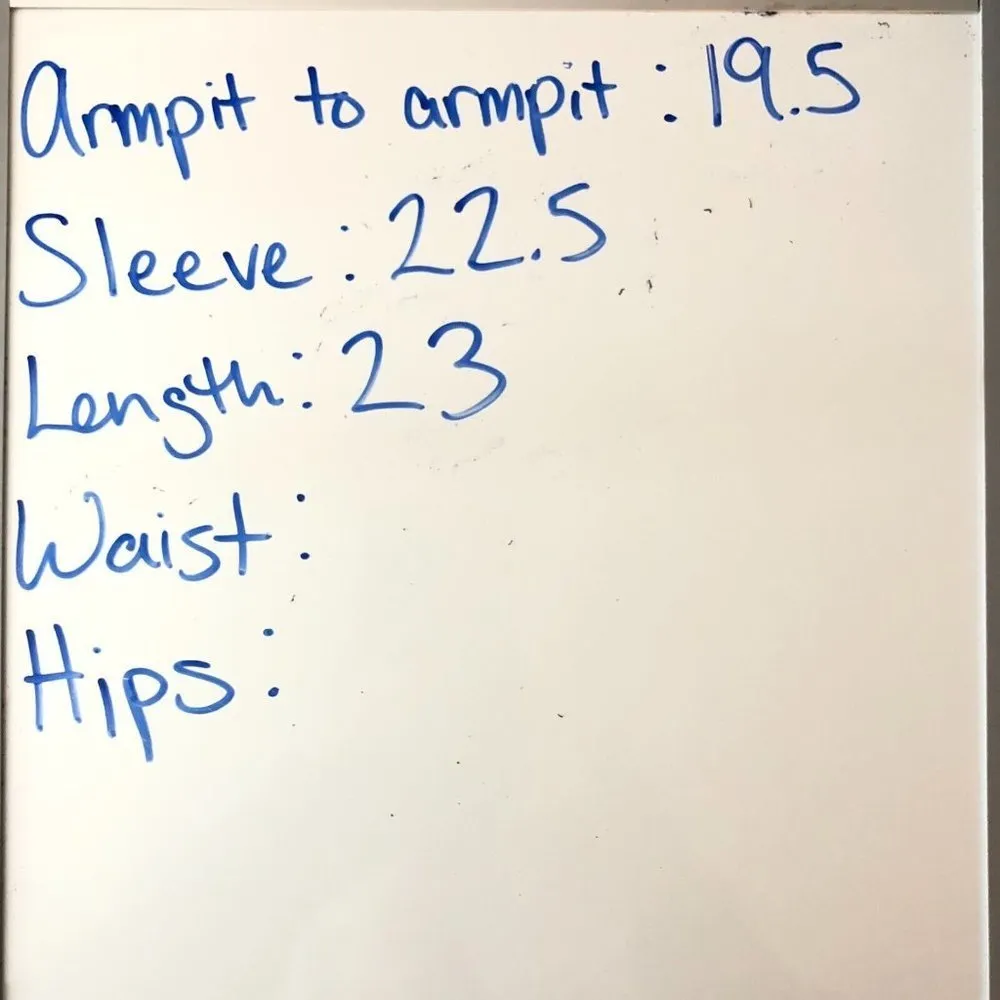 Armpit to armpit : 19.5
Sleeve : 22.5
Length : 23
Waist :
Hips :